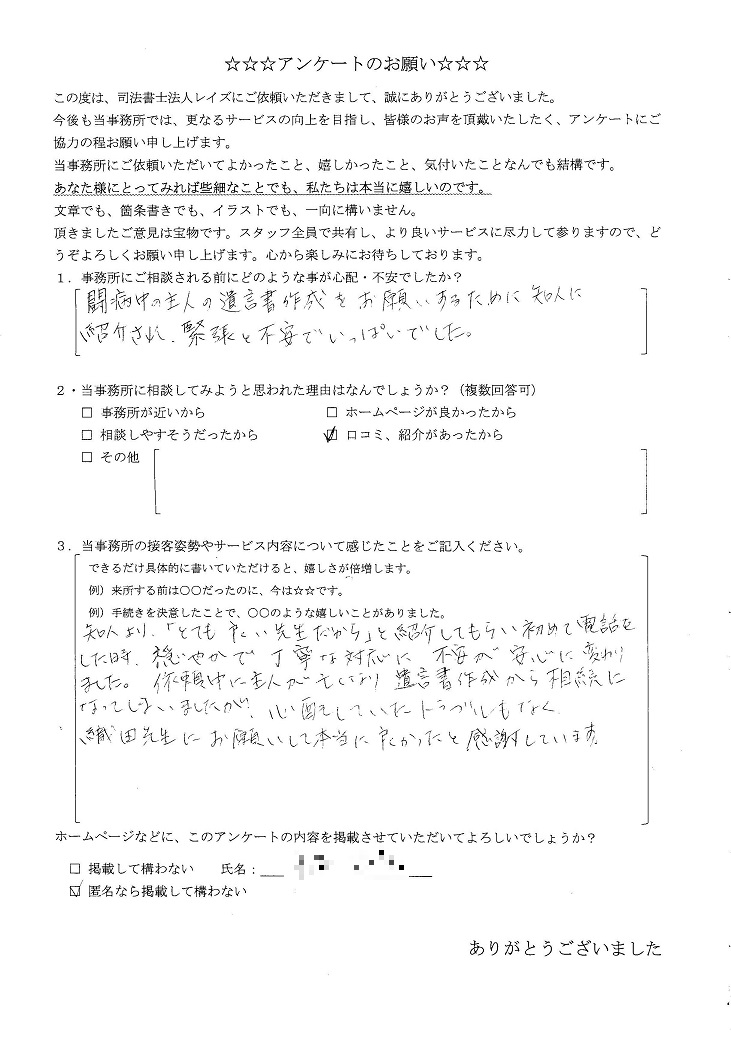 ☆☆☆アンケートのお願い☆☆☆
この度は、司法書士法人レイズにご依頼いただきまして、誠にありがとうございました。
今後も当事務所では、更なるサービスの向上を目指し、皆様のお声を頂戴いたしたく、アンケートにご
協力の程お願い申し上げます。
当事務所にご依頼いただいてよかったこと、嬉しかったこと、気付いたことなんでも結構です。
あなた様にとってみれば些細なことでも、私たちは本当に嬉しいのです。
文章でも、箇条書きでも、イラストでも、一向に構いません。
頂きましたご意見は宝物です。スタッフ全員で共有し、より良いサービスに尽力して参りますので、ど
うぞよろしくお願い申し上げます。心から楽しみにお待ちしております。
1．事務所にご相談される前にどのような事が心配・不安でしたか？
闘病中の主人の遺言書作成をお願いするために知人に
紹介され、緊張と不安でいっぱいでした。
2・当事務所に相談してみようと思われた理由はなんでしょうか？（複数回答可）
□ 事務所が近いから □ ホームページが良かったから
□ 相談しやすそうだったから ☑ 口コミ、紹介があったから
□ その他
3．当事務所の接客姿勢やサービス内容について感じたことをご記入ください。
できるだけ具体的に書いていただけると、嬉しさが倍増します。
例）来所する前は○○だったのに、今は☆☆です。
例）手続きを決意したことで、○○のような嬉しいことがありました。
知人より、「とても良い先生だから」と紹介してもらい初めて電話を
した時、穏やかで丁寧な対応に不安が安心に変わり
ました。依頼中に主人が亡くなり遺言書作成から相続に
なってしまいましたが、心配をしていたトラブルもなく
織田先生にお願いして本当に良かったと感謝しています。
ホームページなどに、このアンケートの内容を掲載させていただいてよろしいでしょうか？
□ 掲載して構わない 氏名：
☑ 匿名なら掲載して構わない
ありがとうございました